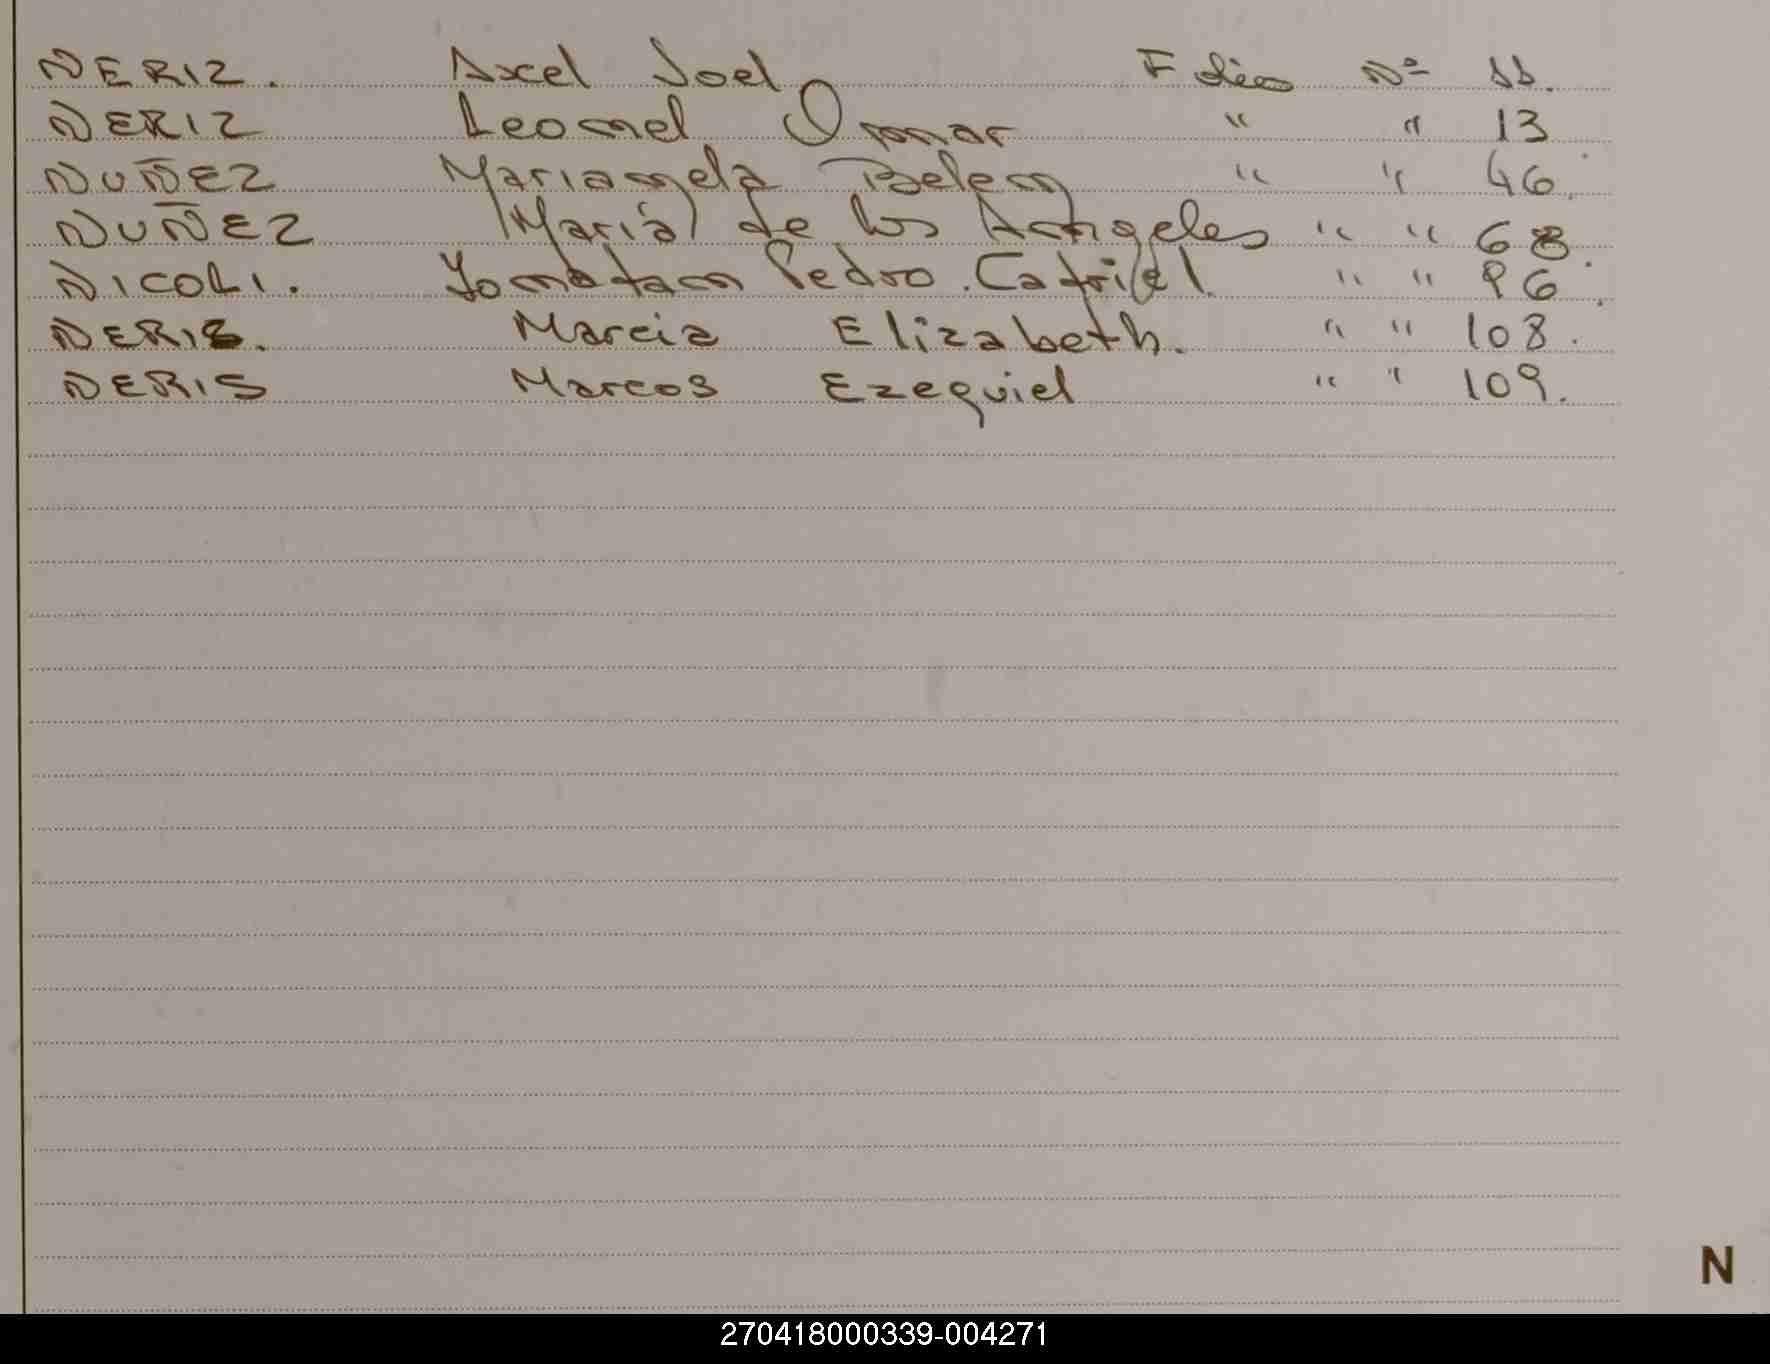 NERIZ. Axel Joel Folio Nº 11.
NERIZ Leonel Omar " " 13
NUÑEZ Mariangela Belen " " 46.
NUÑEZ Maria de los Angeles " " 68.
NICOLI. Yonatan Pedro Catriel " " 96.
NERIS. Marcia Elizabeth. " " 108.
NERIS Marcos Ezequiel " " 109.
N
270418000339-004271